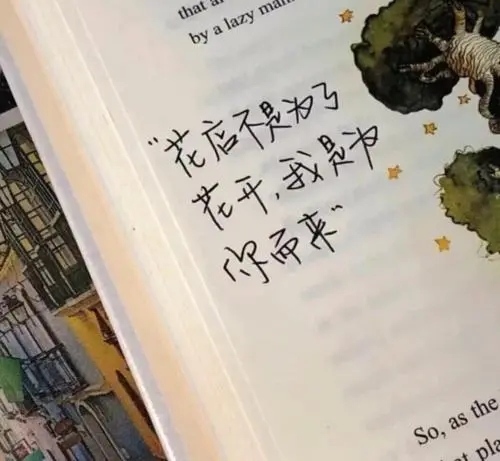 that a
by a lazy man
"花店不是为了
花开,我是为
你而来"
So, as the
that pla